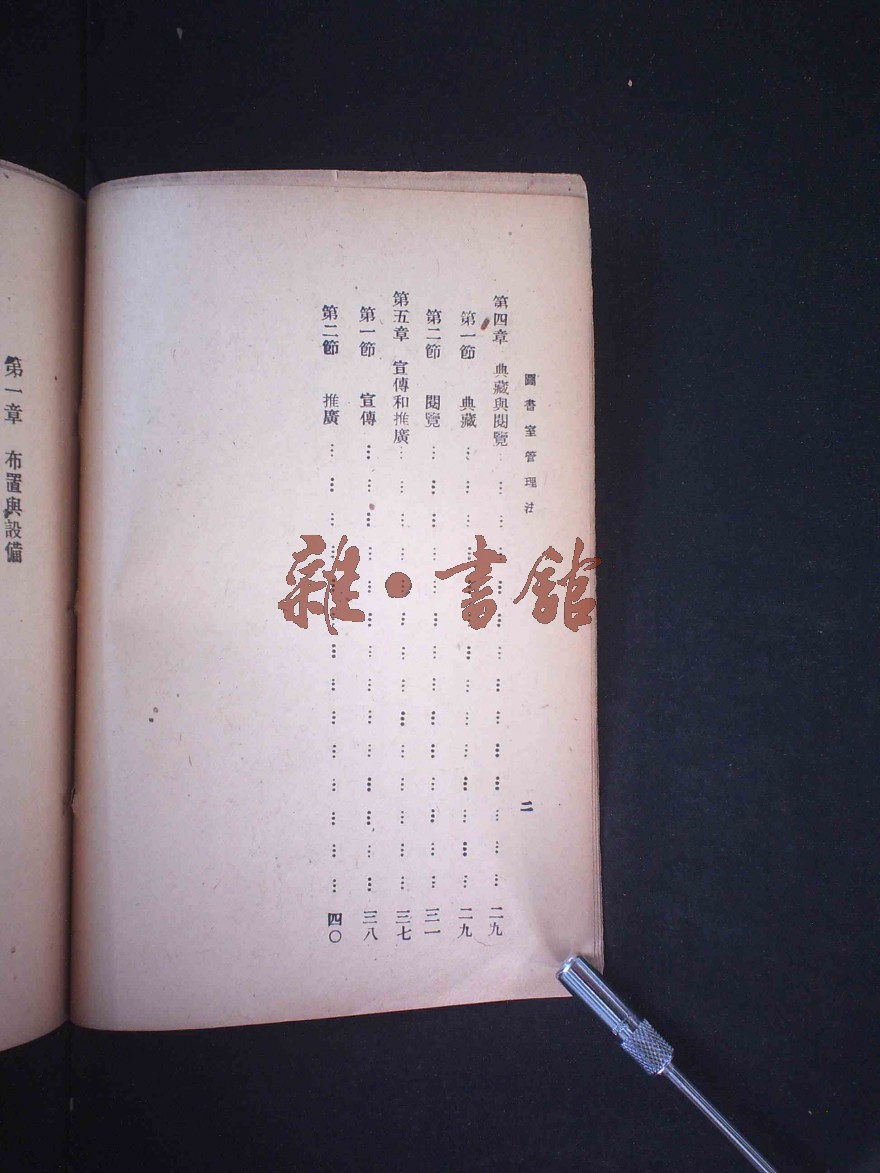 圖書室管理法
二
第四章 典藏與閱覽 二九
第一節 典藏 二九
第二節 閱覽 三一
第五章 宣傳和推廣 三七
第一節 宣傳 三八
第二節 推廣 四〇
第一章 布置與設備
雜·書舘